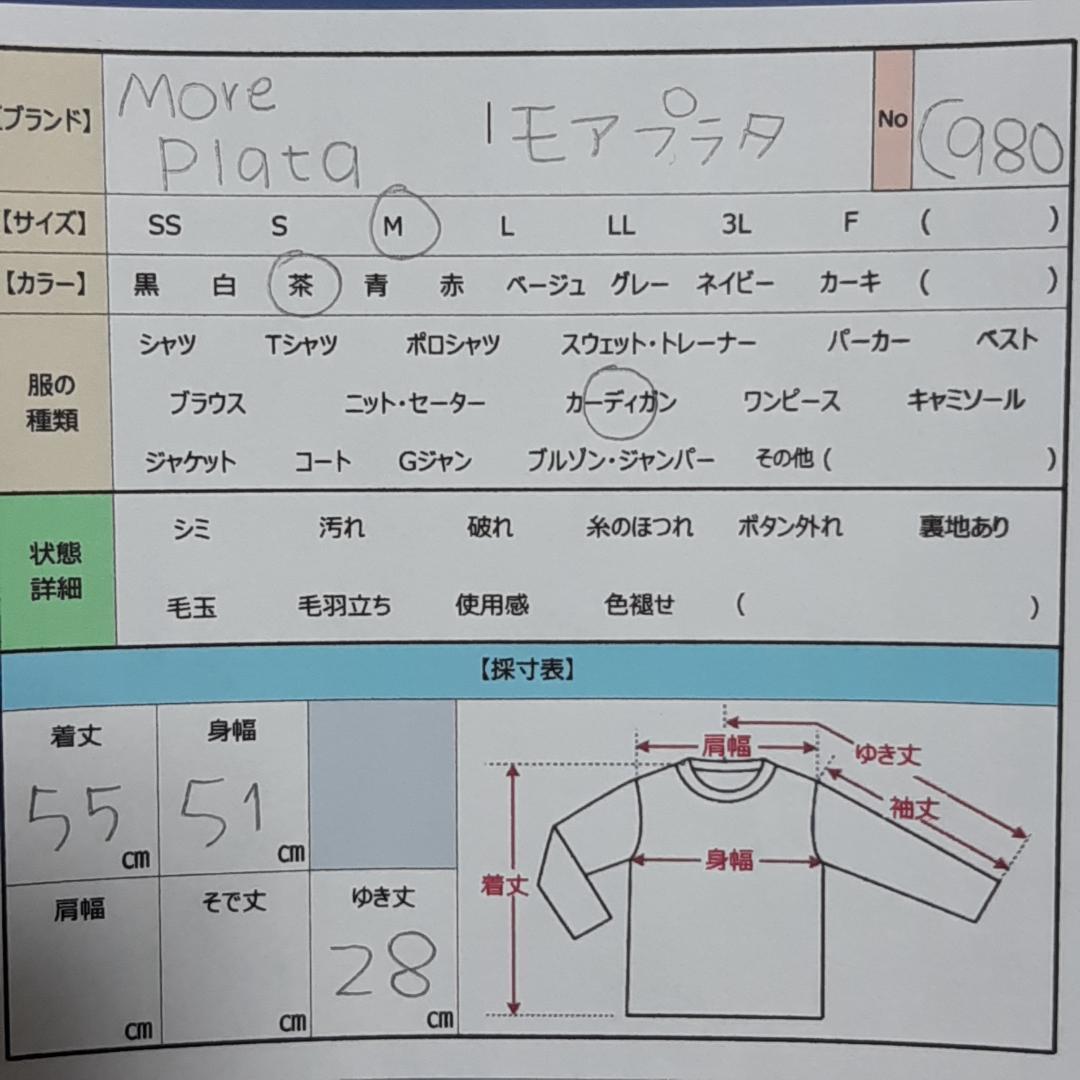 【ブランド】 More Plata | モアプラタ No (980
【サイズ】 SS S M L LL 3L F ( )
【カラー】 黒 白 茶 青 赤 ベージュ グレー ネイビー カーキ ( )
服の種類
シャツ Tシャツ ポロシャツ スウェット・トレーナー パーカー ベスト
ブラウス ニット・セーター カーディガン ワンピース キャミソール
ジャケット コート Gジャン ブルゾン・ジャンパー その他 ( )
状態詳細
シミ 汚れ 破れ 糸のほつれ ボタン外れ 裏地あり
毛玉 毛羽立ち 使用感 色褪せ ( )
【採寸表】
着丈 身幅
55 cm 51 cm
肩幅 そで丈 ゆき丈
cm cm 28 cm
肩幅 ゆき丈
袖丈
身幅
着丈